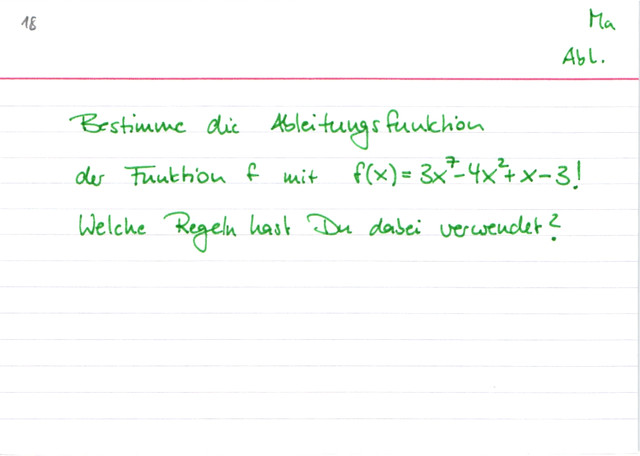 18
Ma
Abl.
Bestimme die Ableitungsfunktion
der Funktion f mit f(x) = 3x⁷-4x²+x-3!
Welche Regeln hast Du dabei verwendet?